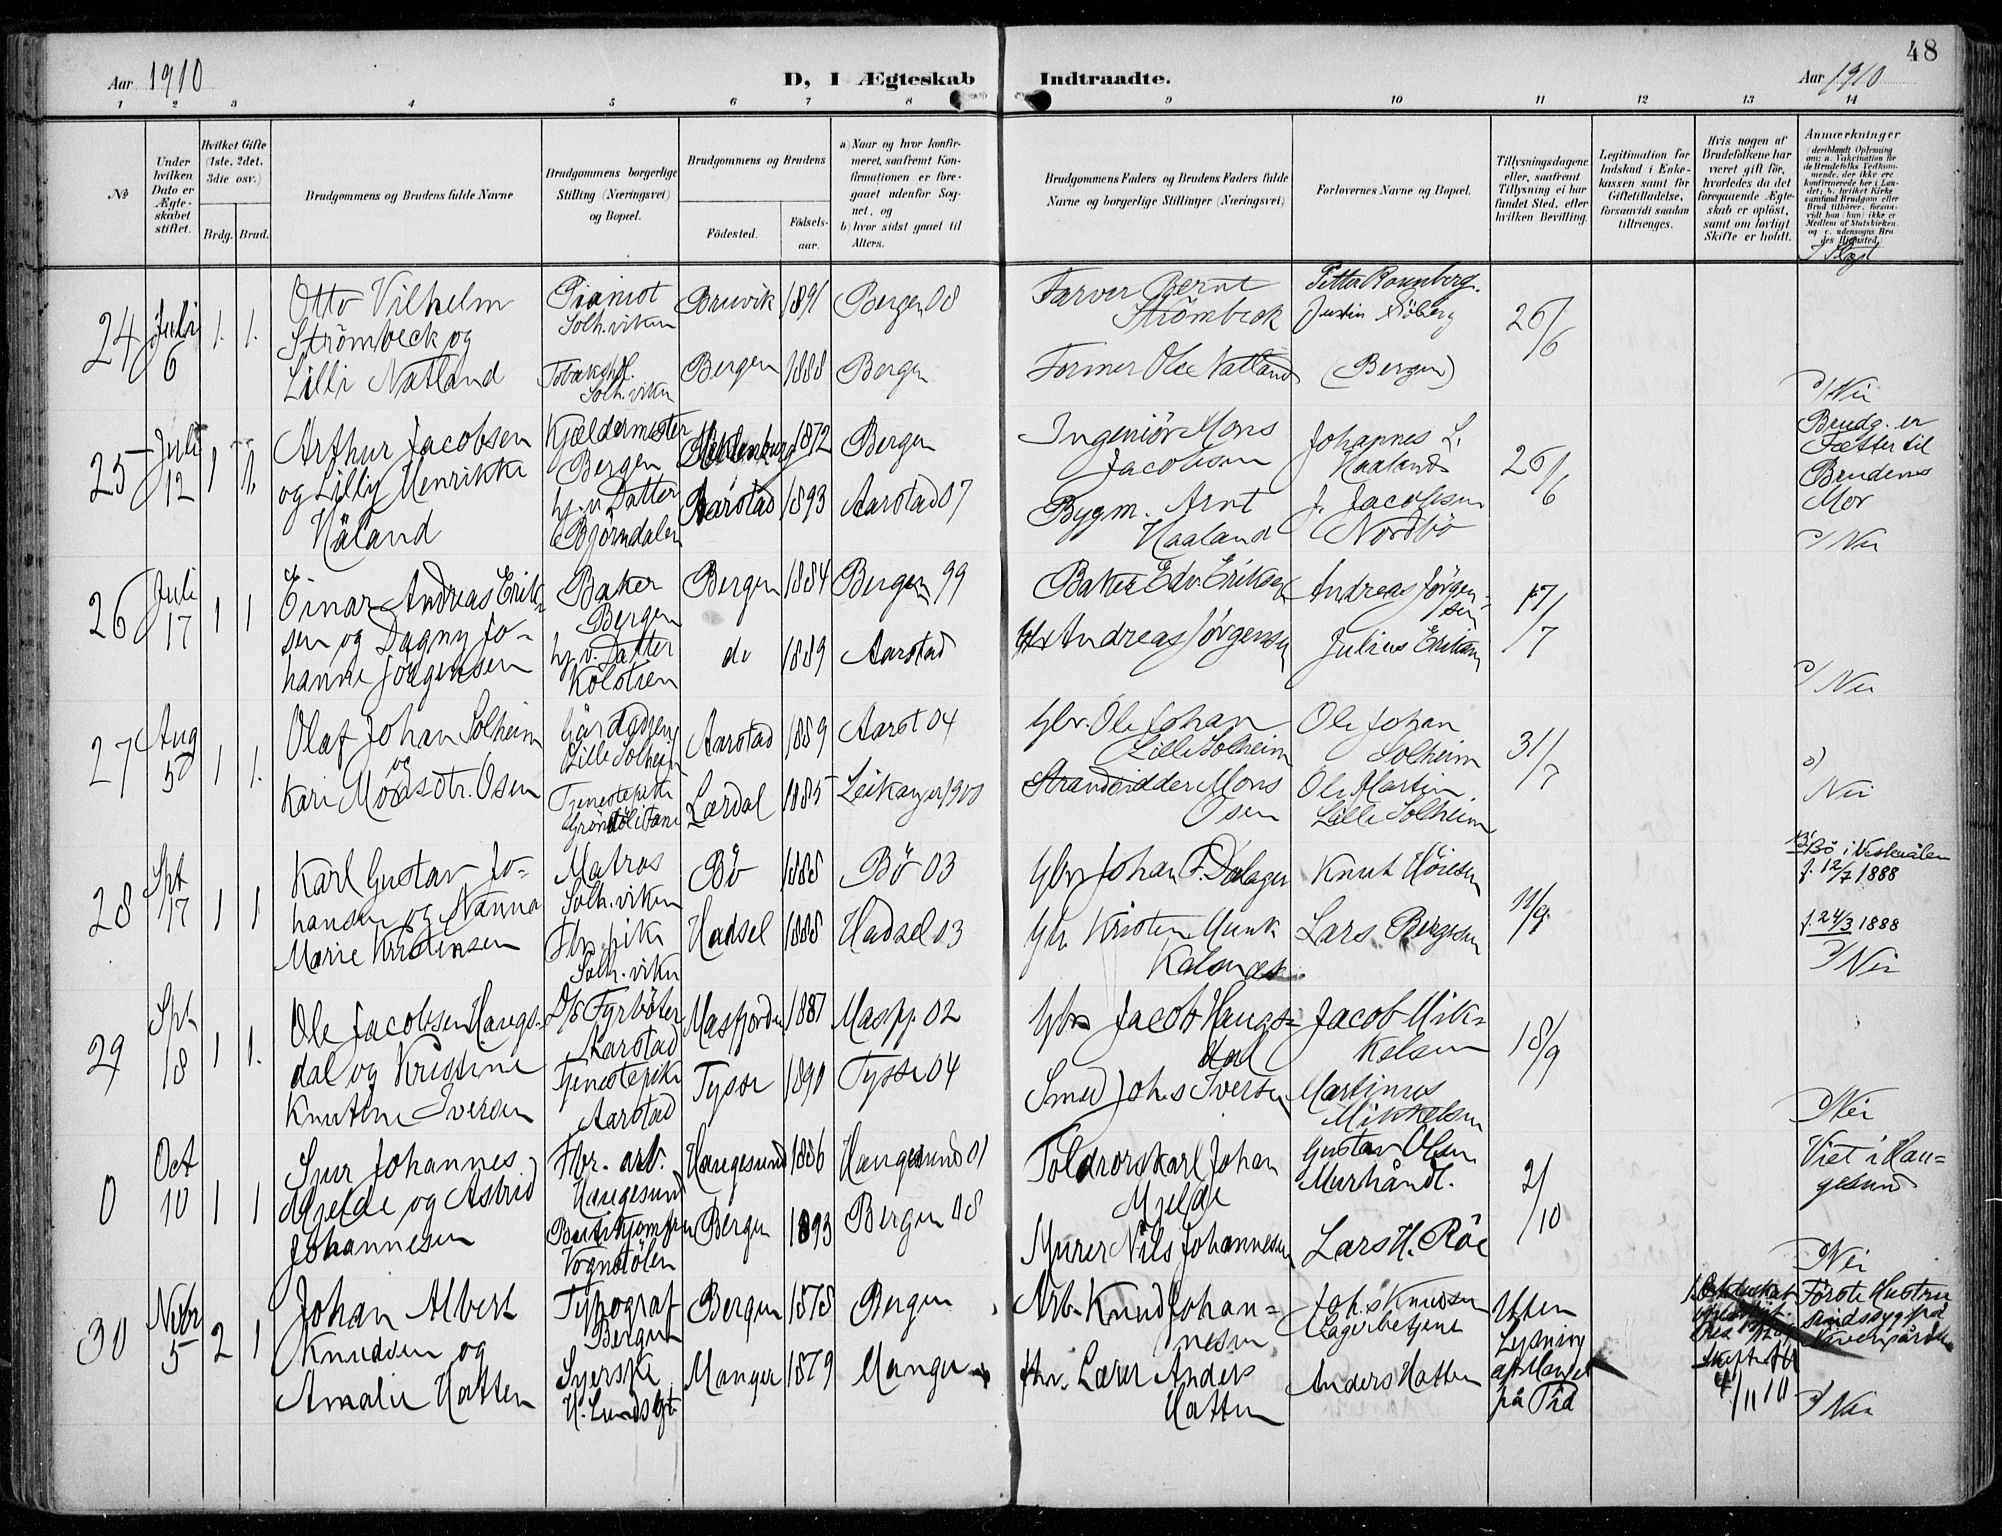 48
Aar 1910
D, I Ægteskab Indtraadte.
Aar 1910
1 2 3 4 5 6 7 8 9 10 11 12 13 14
No
Under hvilken Dato er Ægteskabet stiftet.
Hvilket Gifte (1ste, 2det, 3die osv.)
Brdg. Brud.
Brudgommens og Brudens fulde Navne
Brudgommens borgerlige Stilling (Næringsvei) og Bopæl.
Brudgommens og Brudens
Födested.
Födselsaar.
a) Naar og hvor konfirmeret, saafremt Konfirmationen er foregaaet udenfor Sognet, og
b) hvor sidst gaaet til Alters.
Brudgommens Faders og Brudens Faders fulde Navne og borgerlige Stillinger (Næringsvei)
Forlovernes Navne og Bopæl.
Tillysningsdagene eller, saafremt Tillysning ei har fundet Sted, efter hvilken Bevilling.
Legitimation for Indskud i Enkekassen samt for Giftetilladelse, forsaavidt saadan tiltrænges.
Hvis nogen af Brudefolkene har været gift för, hvorledes da det foregaaende Ægteskab er oplöst, samt om lovligt Skifte er holdt.
Anmærkninger
24
Juli 6
1. 1.
Otto Vilhelm
Strømbeck og
Lilli Natland
Pianist
Solh.viken
Solh.viken
Bruvik 1891 Bergen 08
Bergen 1888 Bergen
Farver Bernt
Strømbeck
Former Ole Natland
Petter Rosenberg.
Justin Siberg
(Bergen)
26/6
Nei
25
Juli 12
1 1.
Arthur Jacobsen
og Lilly Henrikke
Håland
Kjældermester
Bergen
hj.v. Datter
Björndalen
1872 Bergen
Aarstad 1893 Aarstad 07
Ingeniör Mons
Jacobsen
Bygm. Arnt
Haaland
Johannes L.
Haaland
J. Jacobsen
Nordbö
26/6
Brudg. er
Fætter til
Brudens
Mor
Nei
26
Juli 17
1 1
Einar Andreas Erik-
sen og Dagny Jo-
hanne Jörgensen
Baker
Bergen
hj.v. Datter
Kolstien
Bergen 1884 Bergen 99
do 1889 Aarstad
Baker Edv. Eriksen
Andreas Jörgensen
Andreas Jörgen-
sen
Julius Eriksen
17/7
Nei
27
Aug 5
1 1.
Olaf Johan Solheim
og
Kari Monsdtr. Osen
Lille Solheim
Tjenestepike
Aarstad 1889 Aarst 04
Lærdal 1885 Leikanger 1900
Gbr. Ole Johan
Lille Solheim
Strandsidder Mons
Osen
Ole Johan
Solheim
Ole Martin
Lille Solheim
31/7
Nei
28
Spt 17
1 1
Karl Gustav Jo-
hansen og Nanna
Marie Kristensen
Matros
Solh.viken
Fbr.pike
Solh.viken
Bö 1888 Bö 03
Hadsel 1888 Hadsel 03
Gbr Johan P. Dalager
Kristen Munk
Kalsnes
Knut Höiesen
Lars Bergesen
11/9.
Bö i Vesterålen
f. 12/7 1888
f. 24/3 1888
Nei
29
Spt 18
1 1.
Ole Jacobsen Haugs-
dal og Kristine
Knutine Iversen
D/S Fyrböter
Aarstad
Tjenestepike
Aarstad
Masfjorden 1887 Masfj. 02
Tysse 1890 Tysse 04
Gbr Jacob Haugs-
dal
Smed Johs Iversen
Jacob Mik-
kelsen
Martinus
Mikkelsen
18/9
Nei
0
Oct 10
1 1
Sjur Johannes
Mjelde og Astrid
Johannesen
Fbr. arb.
Haugesund
Butikjomfru
Vognstölen
Haugesund 1886 Haugesund 01
Bergen 1893 Bergen 08
Toldrorskarl Johan
Mjelde
Murer Nils Johannesen
Gustav Olsen
Murhåndl.
Lars H. Röe
2/10
Viet i Hau-
gesund
Nei
30
Nvbr 5
2 1
Johan Albert
Knudsen og
Amalie Hatten
Typograf
Bergen
Syerske
H. Lundsgt.
Bergen 1878 Bergen
Manger 1879 Manger
Arb. Knud Johan-
nesen
fhv. Lærer Anders
Hatten
Johs Knudsen
Lagerbetjent
Anders Hatten
Uten
Lysning
af Mangel
på Tid
4/11 10
Förste Hustru
sindssyg
Nei